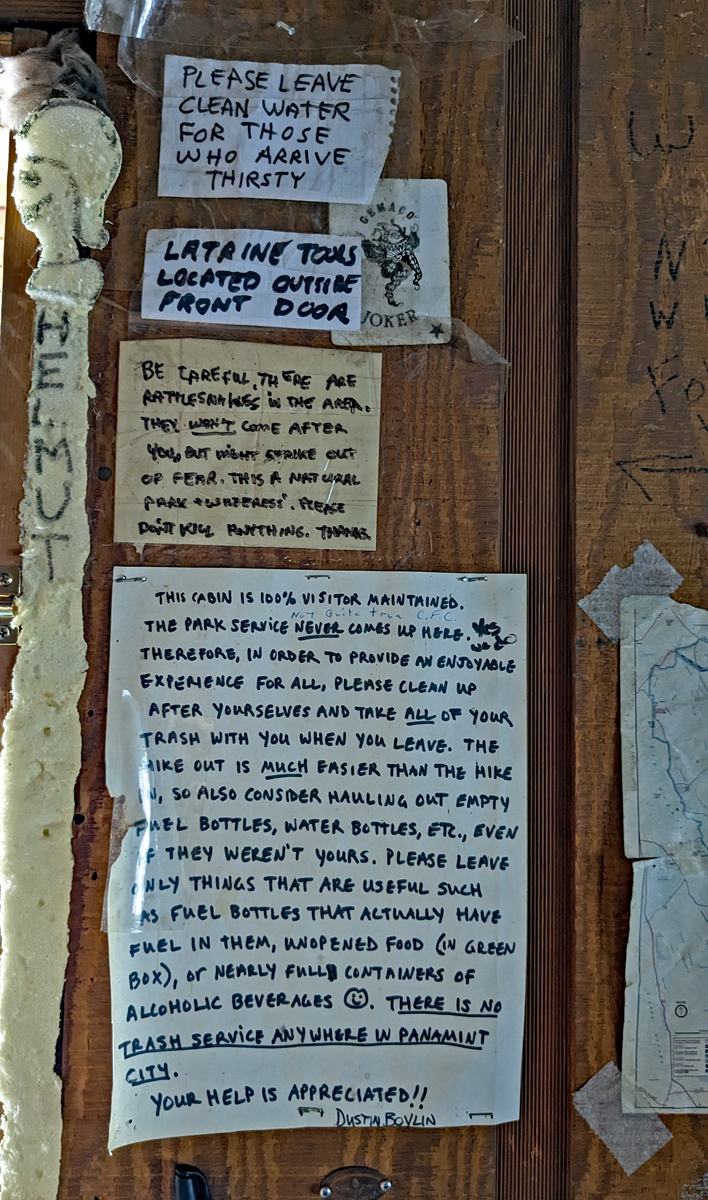 PLEASE LEAVE
CLEAN WATER
FOR THOSE
WHO ARRIVE
THIRSTY
GEMACO
JOKER
LATRINE TOOLS
LOCATED OUTSIDE
FRONT DOOR
HELMUT
BE CAREFUL, THERE ARE
RATTLESNAKES IN THE AREA.
THEY WON'T COME AFTER
YOU, BUT MIGHT STRIKE OUT
OF FEAR. THIS A NATURAL
PARK + WILDERNESS. PLEASE
DON'T KILL ANYTHING. THANKS.
THIS CABIN IS 100% VISITOR MAINTAINED.
Not Quite true C.F.C.
THE PARK SERVICE NEVER COMES UP HERE. Yes we do
THEREFORE, IN ORDER TO PROVIDE AN ENJOYABLE
EXPERIENCE FOR ALL, PLEASE CLEAN UP
AFTER YOURSELVES AND TAKE ALL OF YOUR
TRASH WITH YOU WHEN YOU LEAVE. THE
HIKE OUT IS MUCH EASIER THAN THE HIKE
IN, SO ALSO CONSIDER HAULING OUT EMPTY
FUEL BOTTLES, WATER BOTTLES, ETC., EVEN
IF THEY WEREN'T YOURS. PLEASE LEAVE
ONLY THINGS THAT ARE USEFUL SUCH
AS FUEL BOTTLES THAT ACTUALLY HAVE
FUEL IN THEM, UNOPENED FOOD (IN GREEN
BOX), OR NEARLY FULL CONTAINERS OF
ALCOHOLIC BEVERAGES ☺. THERE IS NO
TRASH SERVICE ANYWHERE IN PANAMINT
CITY.
YOUR HELP IS APPRECIATED!!
DUSTIN BOYLIN